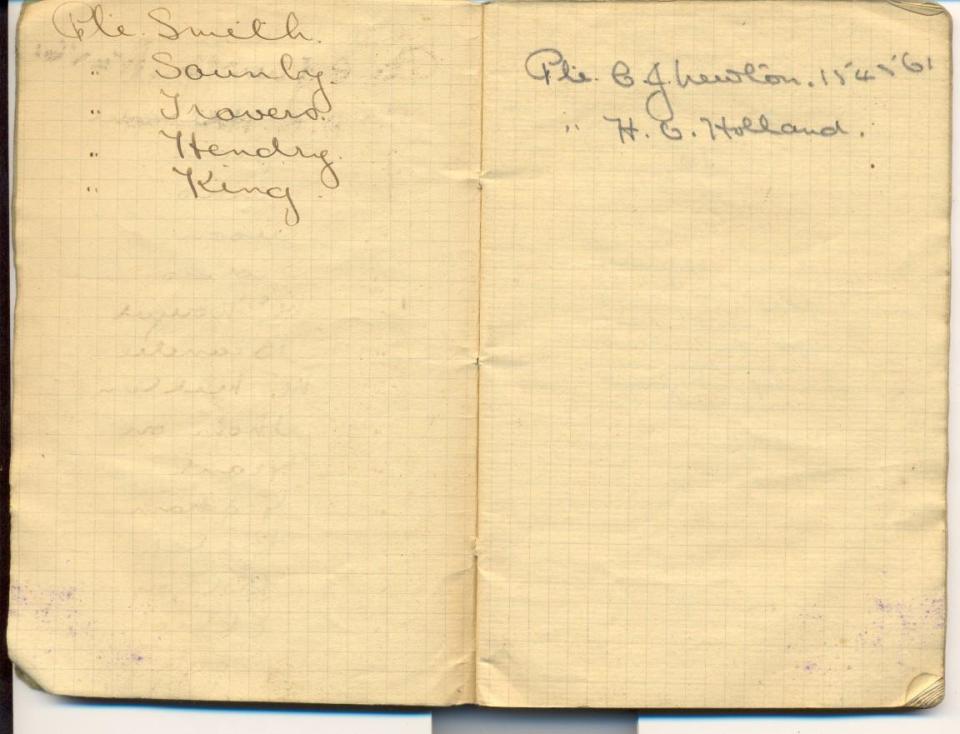 Pte. Smith.
" Sounby.
" Travers.
" Hendry.
" King.
Pte. C. J. Newton. 154561
" H. C. Holland.